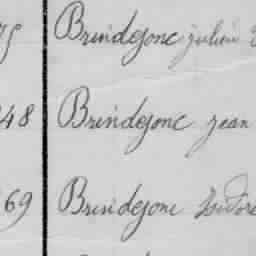 75 Brindejonc julien
48 Brindejonc jean
69 Brindejonc isidore